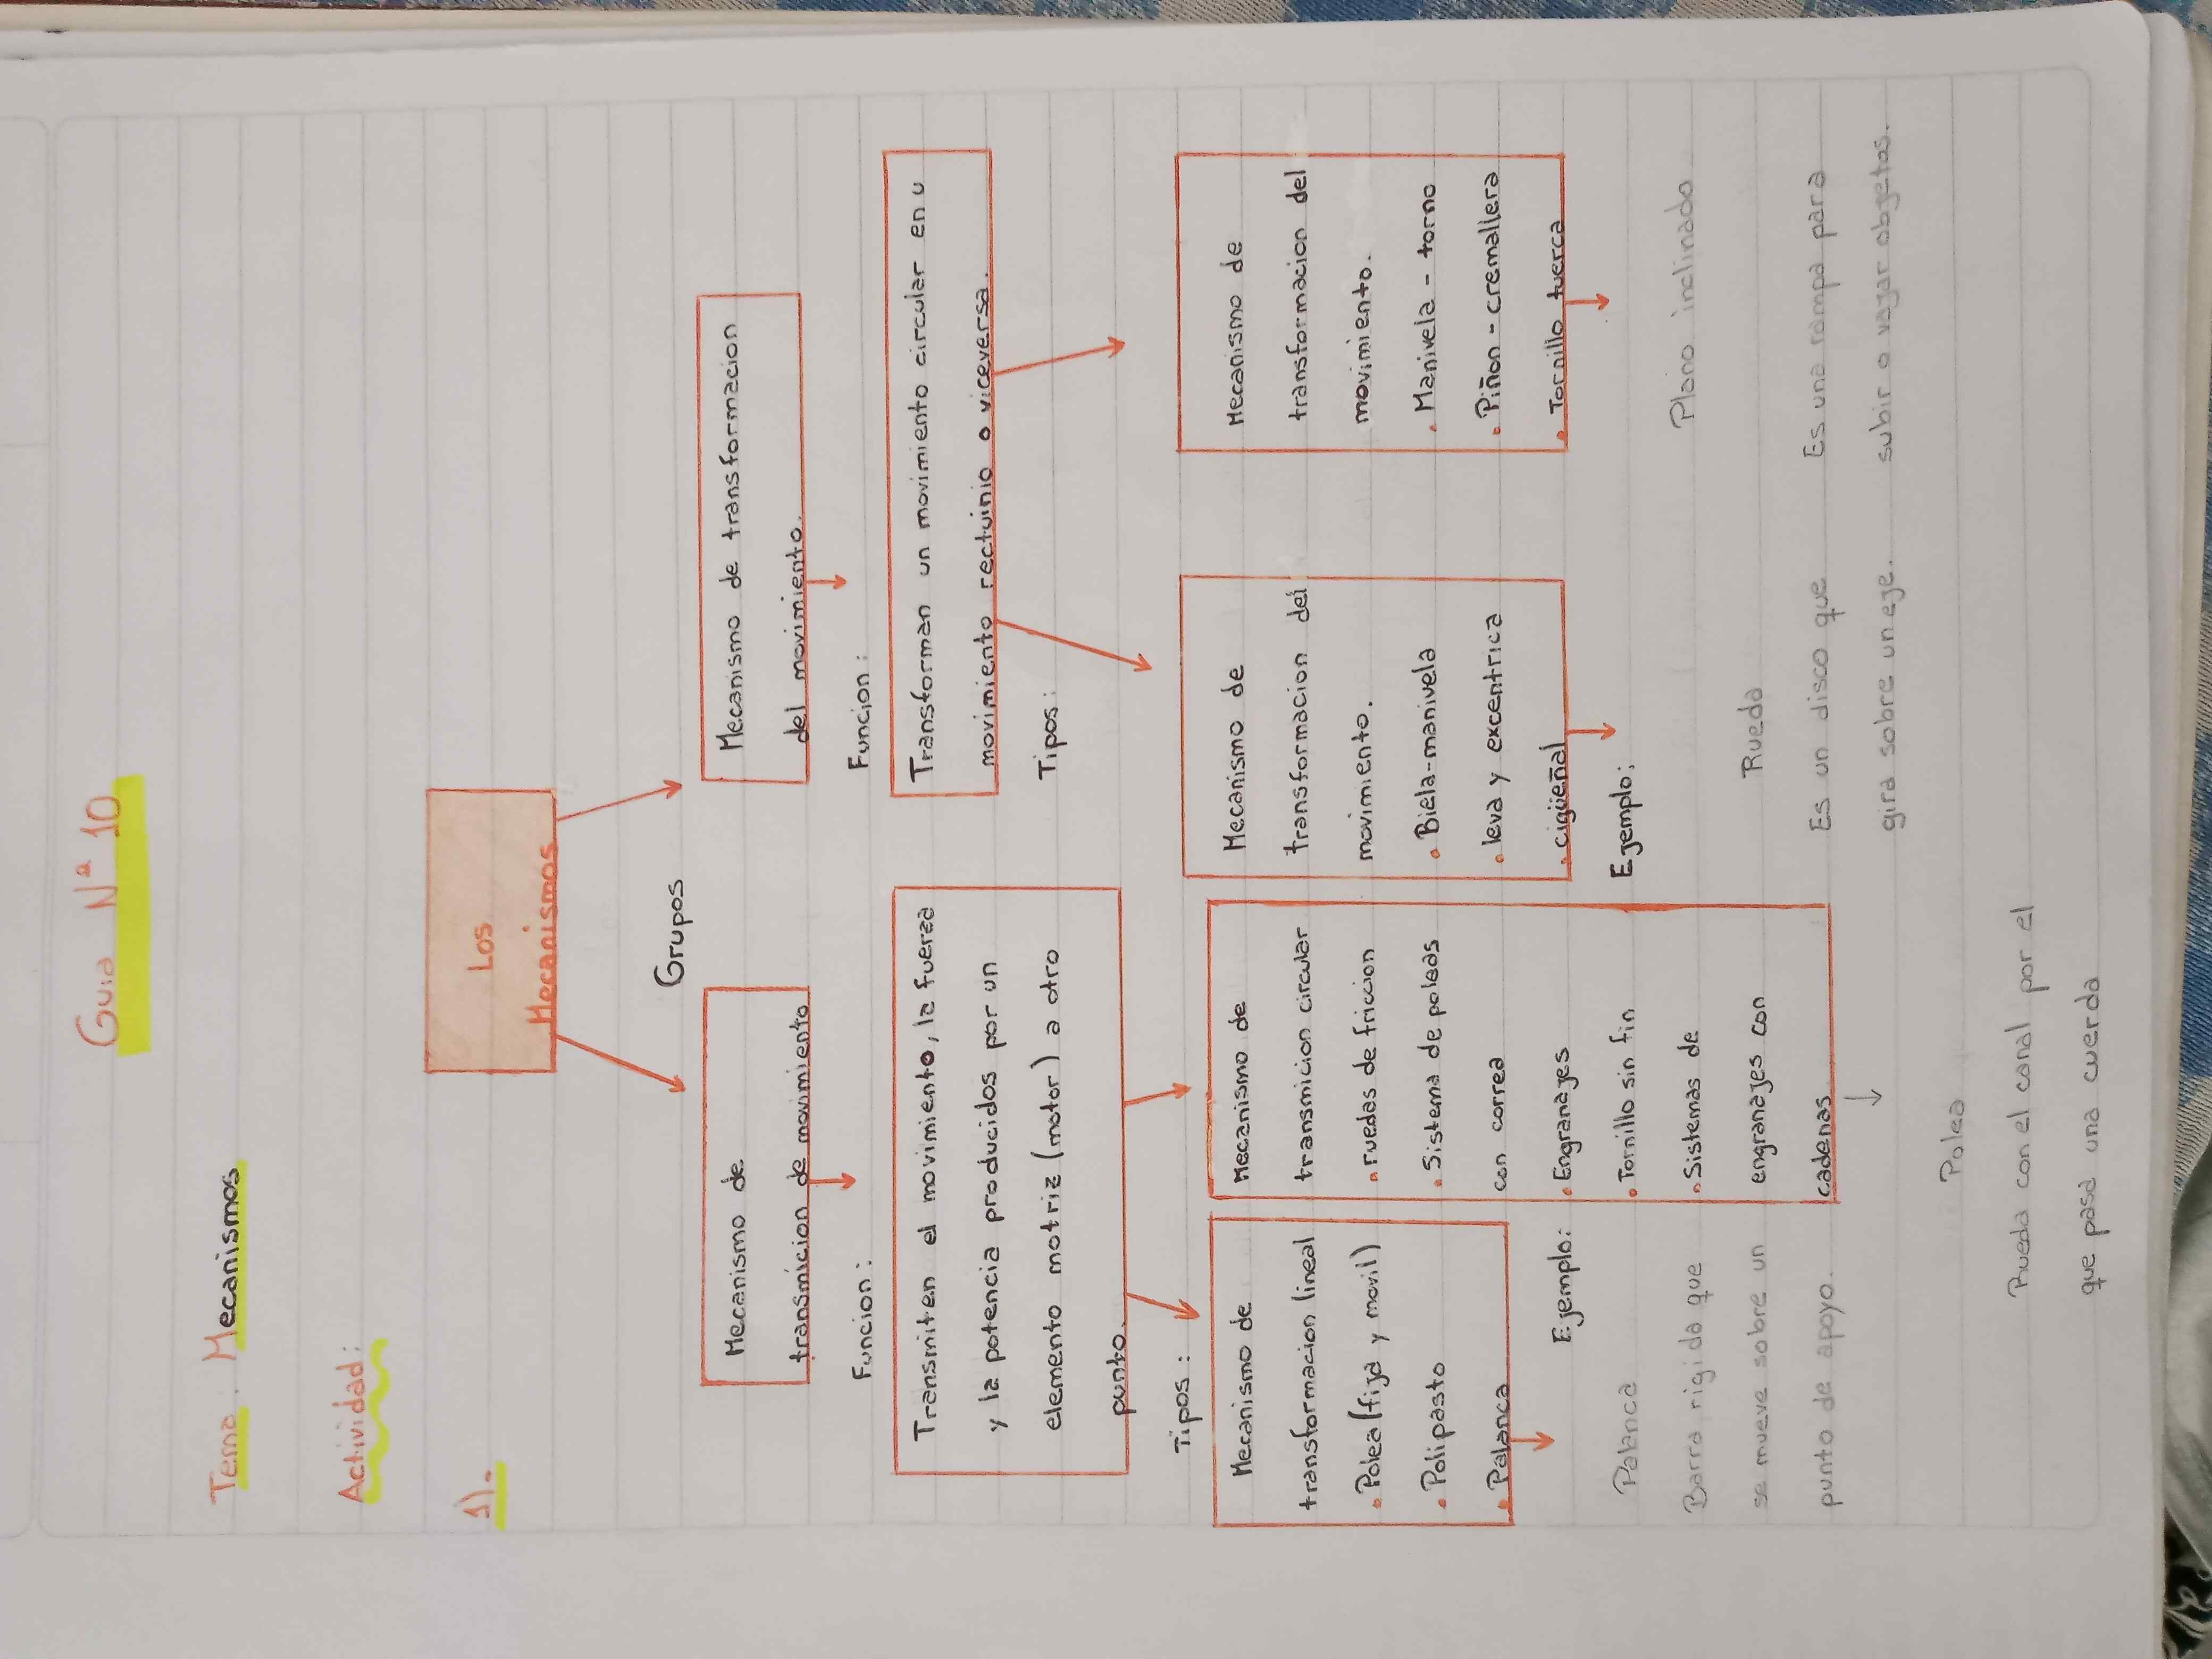 Guia Nª 10
Tema: Mecanismos
Actividad:
1).
Los
Mecanismos
Grupos
Mecanismo de
transmicion de movimiento
Funcion:
Transmiten el movimiento, la fuerza
y la potencia producidos por un
elemento motriz (motor) a otro
punto.
Tipos:
Mecanismo de
transformacion lineal
• Polea (fija y movil)
• Polipasto
• Palanca
Ejemplo:
Palanca
Barra rigida que
se mueve sobre un
punto de apoyo.
Mecanismo de
transmicion circular
• ruedas de friccion
• Sistema de poleas
con correa
• Engranajes
• Tornillo sin fin
• Sistemas de
engranajes con
cadenas
Polea
Rueda con el canal por el
que pasa una cuerda
Mecanismo de transformacion
del movimiento.
Funcion:
Transforman un movimiento circular en u
movimiento rectuinio o viceversa.
Tipos:
Mecanismo de
transformacion del
movimiento.
• Biela-manivela
• leva y excentrica
• cigüeñal
Ejemplo:
Rueda
Es un disco que
gira sobre un eje.
Mecanismo de
transformacion del
movimiento.
• Manivela - torno
• Piñon - cremallera
• Tornillo tuerca
Plano inclinado
Es una rampa para
subir o vajar objetos.